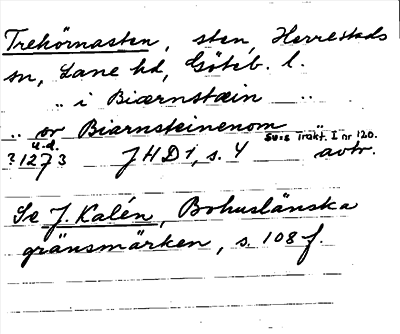 Trehörnasten, sten, Herrestads
sn, Lane hd, Göteb. l.
.. i Biærnstæin ..
.. or Biarnsteinenom
u.d. Sv:s Trakt. I nr 120.
? 1273 JHD 1, s. 4 avtr.
Se J. Kalén, Bohuslänska
gränsmärken, s. 108 f.